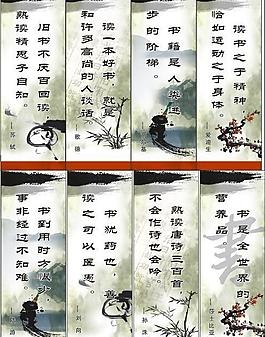 旧书不厌百回读
熟读精思子自知。
—苏轼
读一本好书，就是
和许多高尚的人谈话。
—歌德
书籍是人类进
步的阶梯。
基
读书之于精神
恰如运动之于身体。
—爱迪生
书到用时方恨少，
事非经过不知难。
游
书犹药也，善
读之可以医愚。
—刘向
熟读唐诗三百首
不会作诗也会吟。
—孙洙
書
书是全世界的
营养品。
—莎士比亚